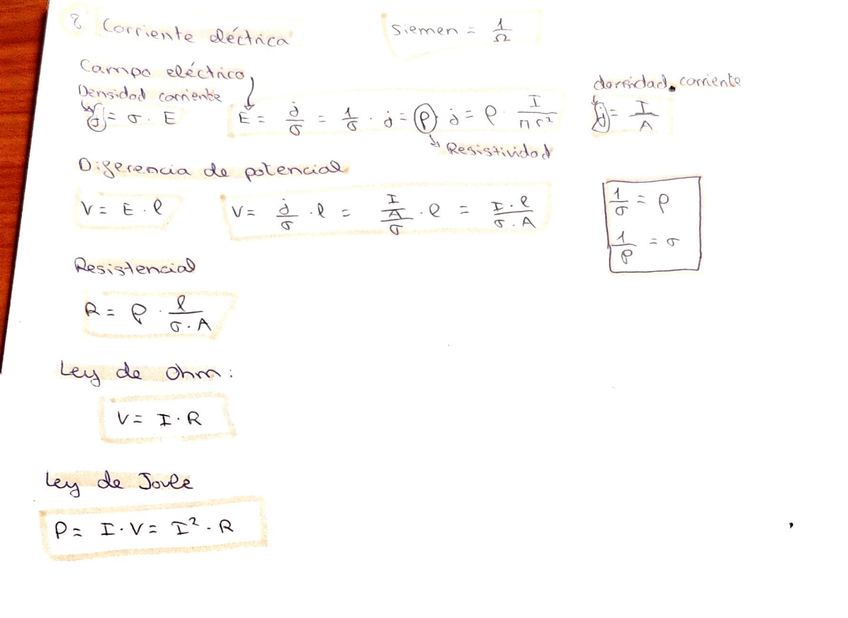 8 Corriente eléctrica
siemen = 1/Ω
Campo eléctrico
Densidad corriente
j = σ · E
E = j/σ = 1/σ · j = ρ j = ρ · I/πr²
Resistividad
densidad corriente
j = I/A
Diferencia de potencial
V = E · l
V = j/σ · l = (I/A)/σ · l = I · l/σ · A
1/σ = ρ
1/ρ = σ
Resistencial
R = ρ · l/σ · A
Ley de Ohm:
V = I · R
Ley de Joule
P = I · V = I² · R